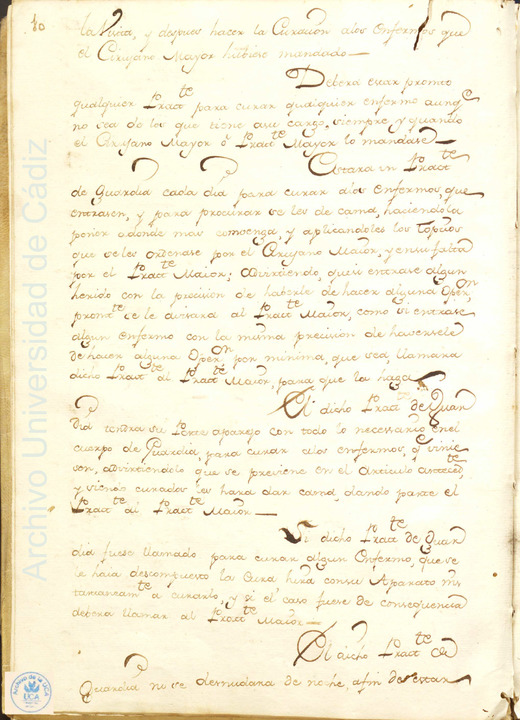 80
la Visita, y despues hacer la Curacion alos Enfermos que
el Cirujano Mayor hubiese mandado—
Debera estar prompto
qualquier Practte para curar qualquier enfermo aunqe
no sea de los que tiene asu cargo, siempre, y quando
el Cirujano Mayor ô Practte Mayor lo mandase—
Estara un Practte
de Guardia cada dia para curar alos Enfermos, que
entrasen, y para procurar se les de cama, haciendola
poner adonde mas convenga, y aplicandoles los Topicos
que seles ordenase por el Cirujano Maior, y en su falta
por el Practte Maior; advirtiendo, que si entrase algun
herido con la precision de haberle de hacer alguna Operon
prontte se le avisara al Practte Maior, como si entrase
algun enfermo con la misma precision de haversele
de hacer alguna Operon por minima, que sea, llamara
dicho Practte al Practte Maior, para que la haga.
El dicho Practte de Guar
dia tendra su Porte aparejo con todo lo necesario en el
cuerpo de Guardia, para curar alos enfermos, qe vinie
sen, advirtiendole que se previene en el Articulo
y siendo curados les hara dar cama, dando parte el
Practte al Practte Maior—
Si dicho Practte de Guar
dia fuese llamado para curar algun Enfermo, que se
le haia descompuesto la Cura hira consu Aparato ins
tantaneamte a curarlo, y si el caso fuese de consequencia
debera llamar al Practte Maior—
El dicho Practte de
Guardia no se desnudara de noche, afin de estar
Archivo Universidad de Cádiz
Archivo de la UCA
UCA